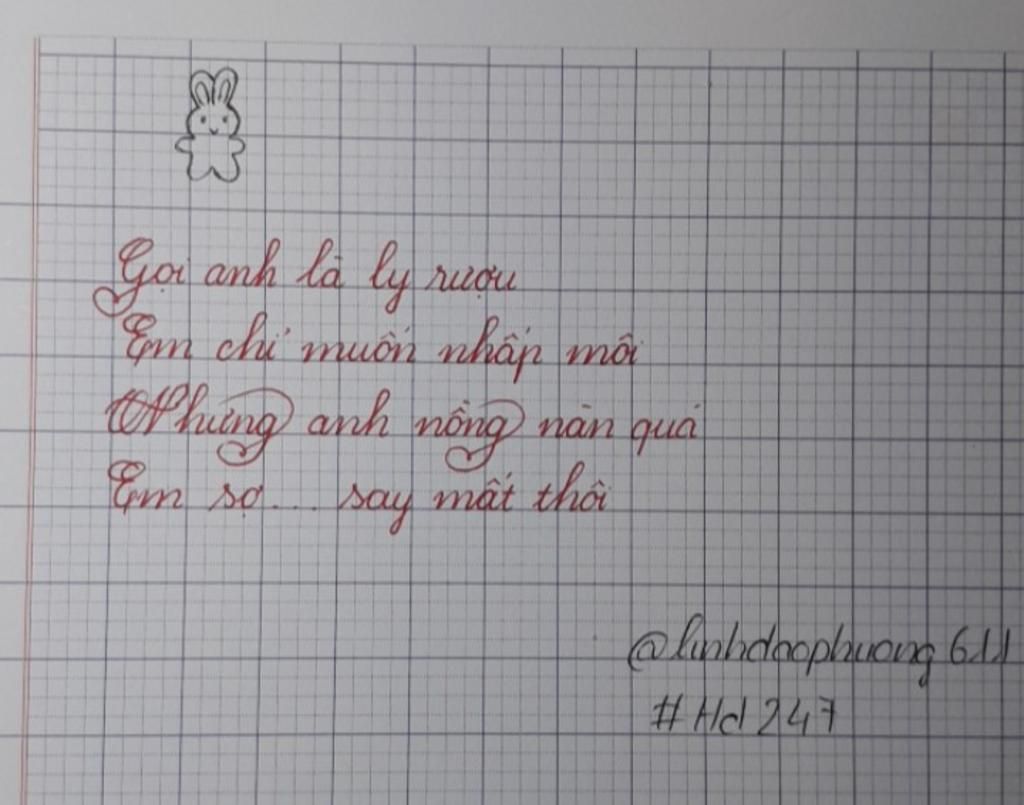 Gọi anh là ly rượu
Em chỉ muốn nhấp môi
Nhưng anh nồng nàn quá
Em sợ... say mất thôi
@linhdaophuong611
#Hd247